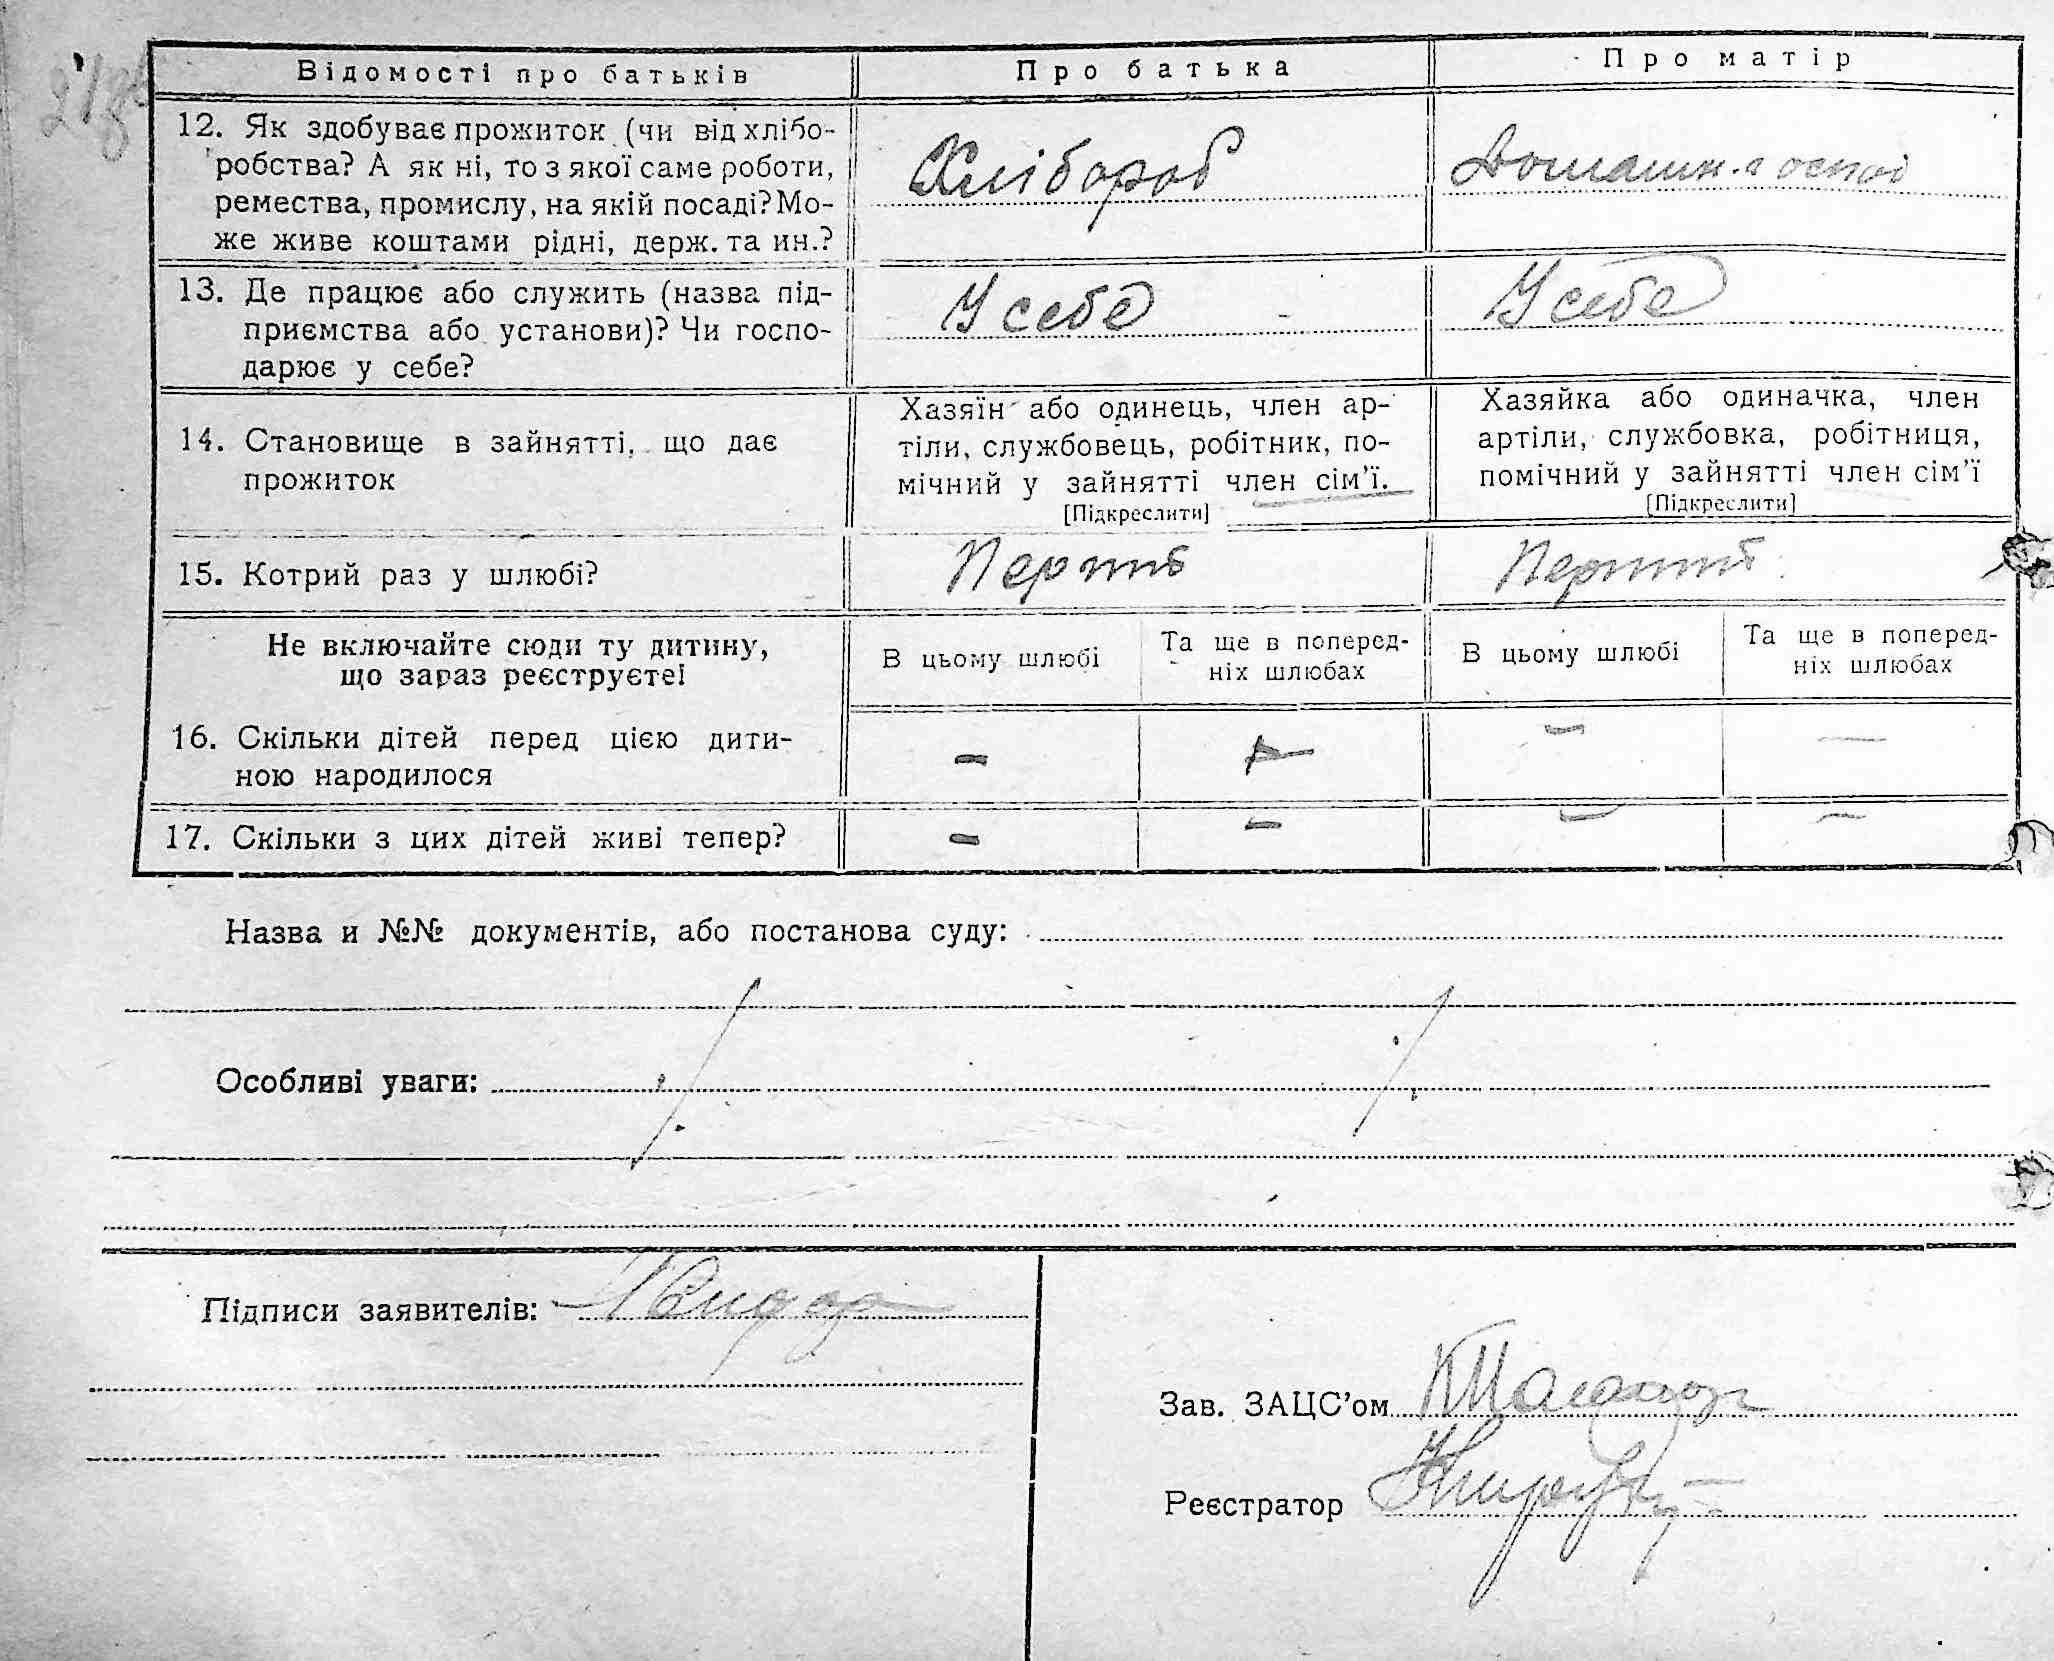 Відомості про батьків
Про батька
Про матір
12. Як здобуває прожиток (чи від хлібо-
робства? А як ні, то з якої саме роботи,
ремества, промислу, на якій посаді? Мо-
же живе коштами рідні, держ. та ин.?
Хлібороб
13. Де працює або служить (назва під-
приємства або установи)? Чи госпо-
дарює у себе?
У себе
У себе
14. Становище в зайнятті, що дає
прожиток
Хазяїн або одинець, член ар-
тіли, службовець, робітник, по-
мічний у зайнятті член сім'ї.
[Підкреслити]
Хазяйка або одиначка, член
артіли, службовка, робітниця,
помічний у зайнятті член сім'ї
[Підкреслити]
15. Котрий раз у шлюбі?
Не включайте сюди ту дитину,
що зараз реєструєте!
В цьому шлюбі
Та ще в поперед-
ніх шлюбах
В цьому шлюбі
Та ще в поперед-
ніх шлюбах
16. Скільки дітей перед цією дити-
ною народилося
- - - -
17. Скільки з цих дітей живі тепер?
- - - -
Назва и №№ документів, або постанова суду:
Особливі уваги:
Підписи заявителів:
Зав. ЗАЦС'ом
Реєстратор